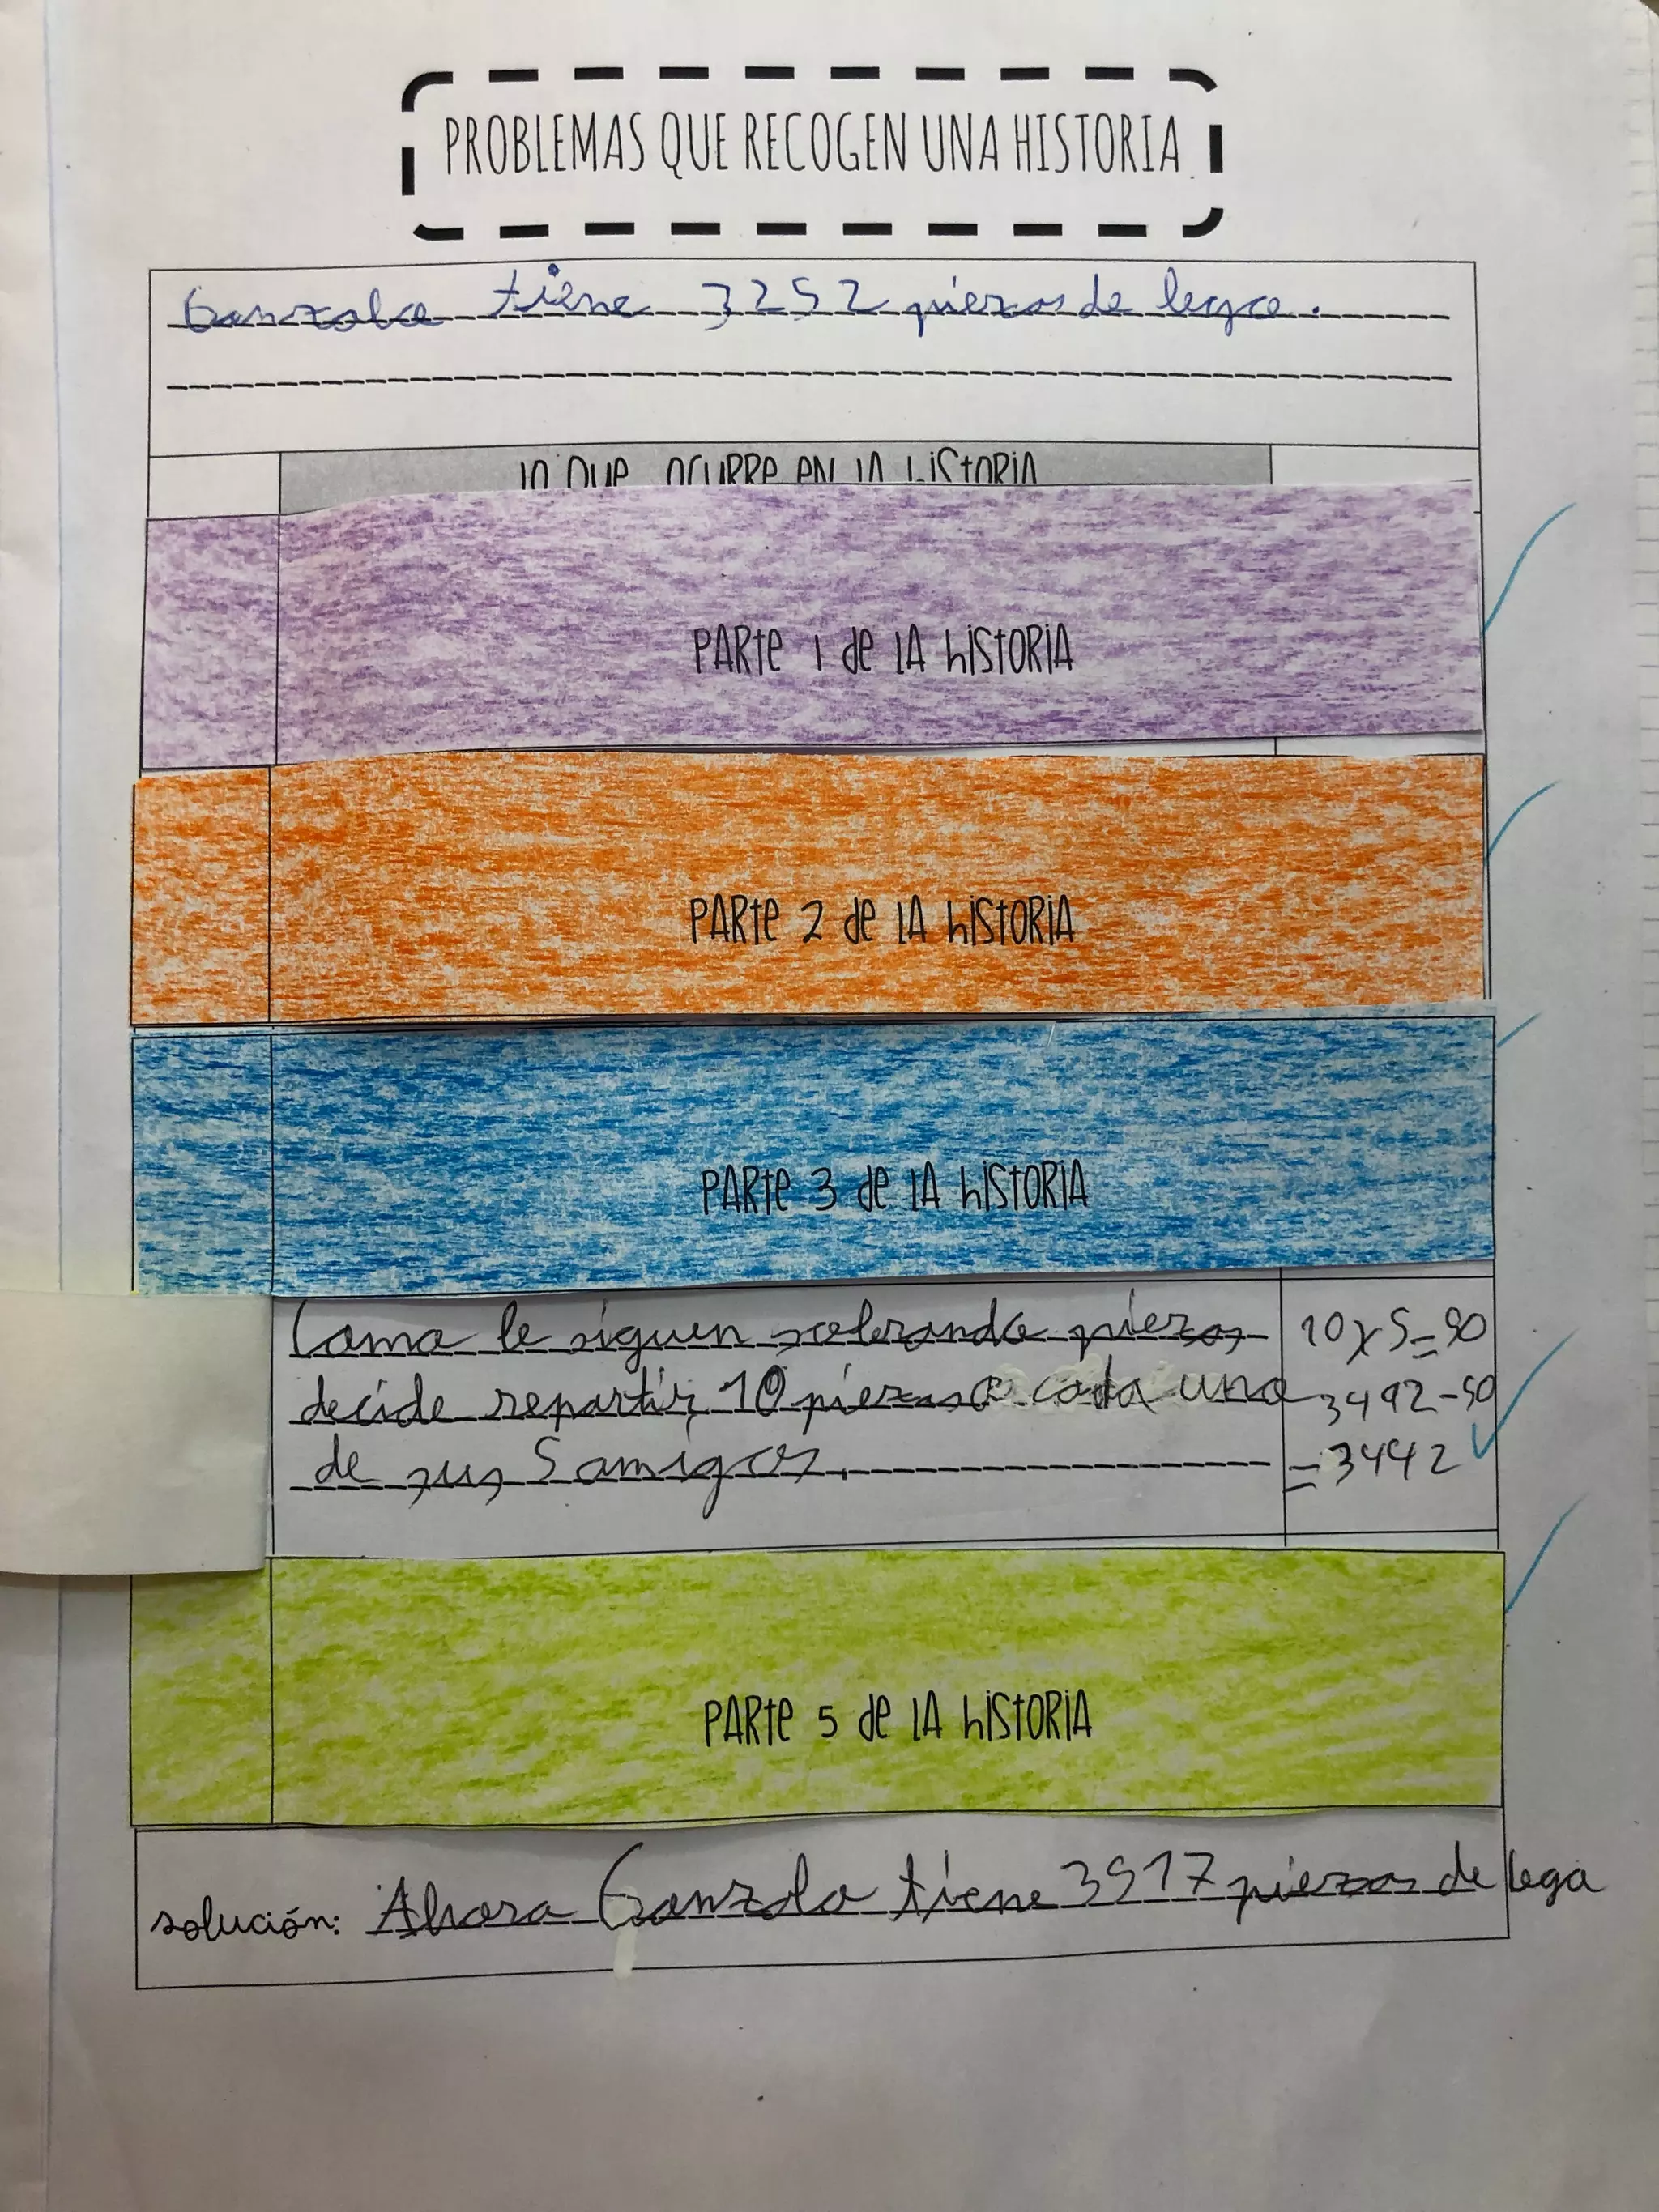 PROBLEMAS QUE RECOGEN UNA HISTORIA
Gonzalo tiene 3252 piezas de lego.
lo que ocurre en la historia
PARTE 1 de LA hiSTORIA
PARTE 2 de LA hiSTORIA
PARTE 3 de LA hiSTORIA
Como le siguen sobrando piezas
decide repartir 10 piezas a cada uno
de sus 5 amigos.
10 x 5 = 50
3492 - 50
= 3442
PARTE 5 de LA hiSTORIA
solución: Ahora Gonzalo tiene 3517 piezas de lego